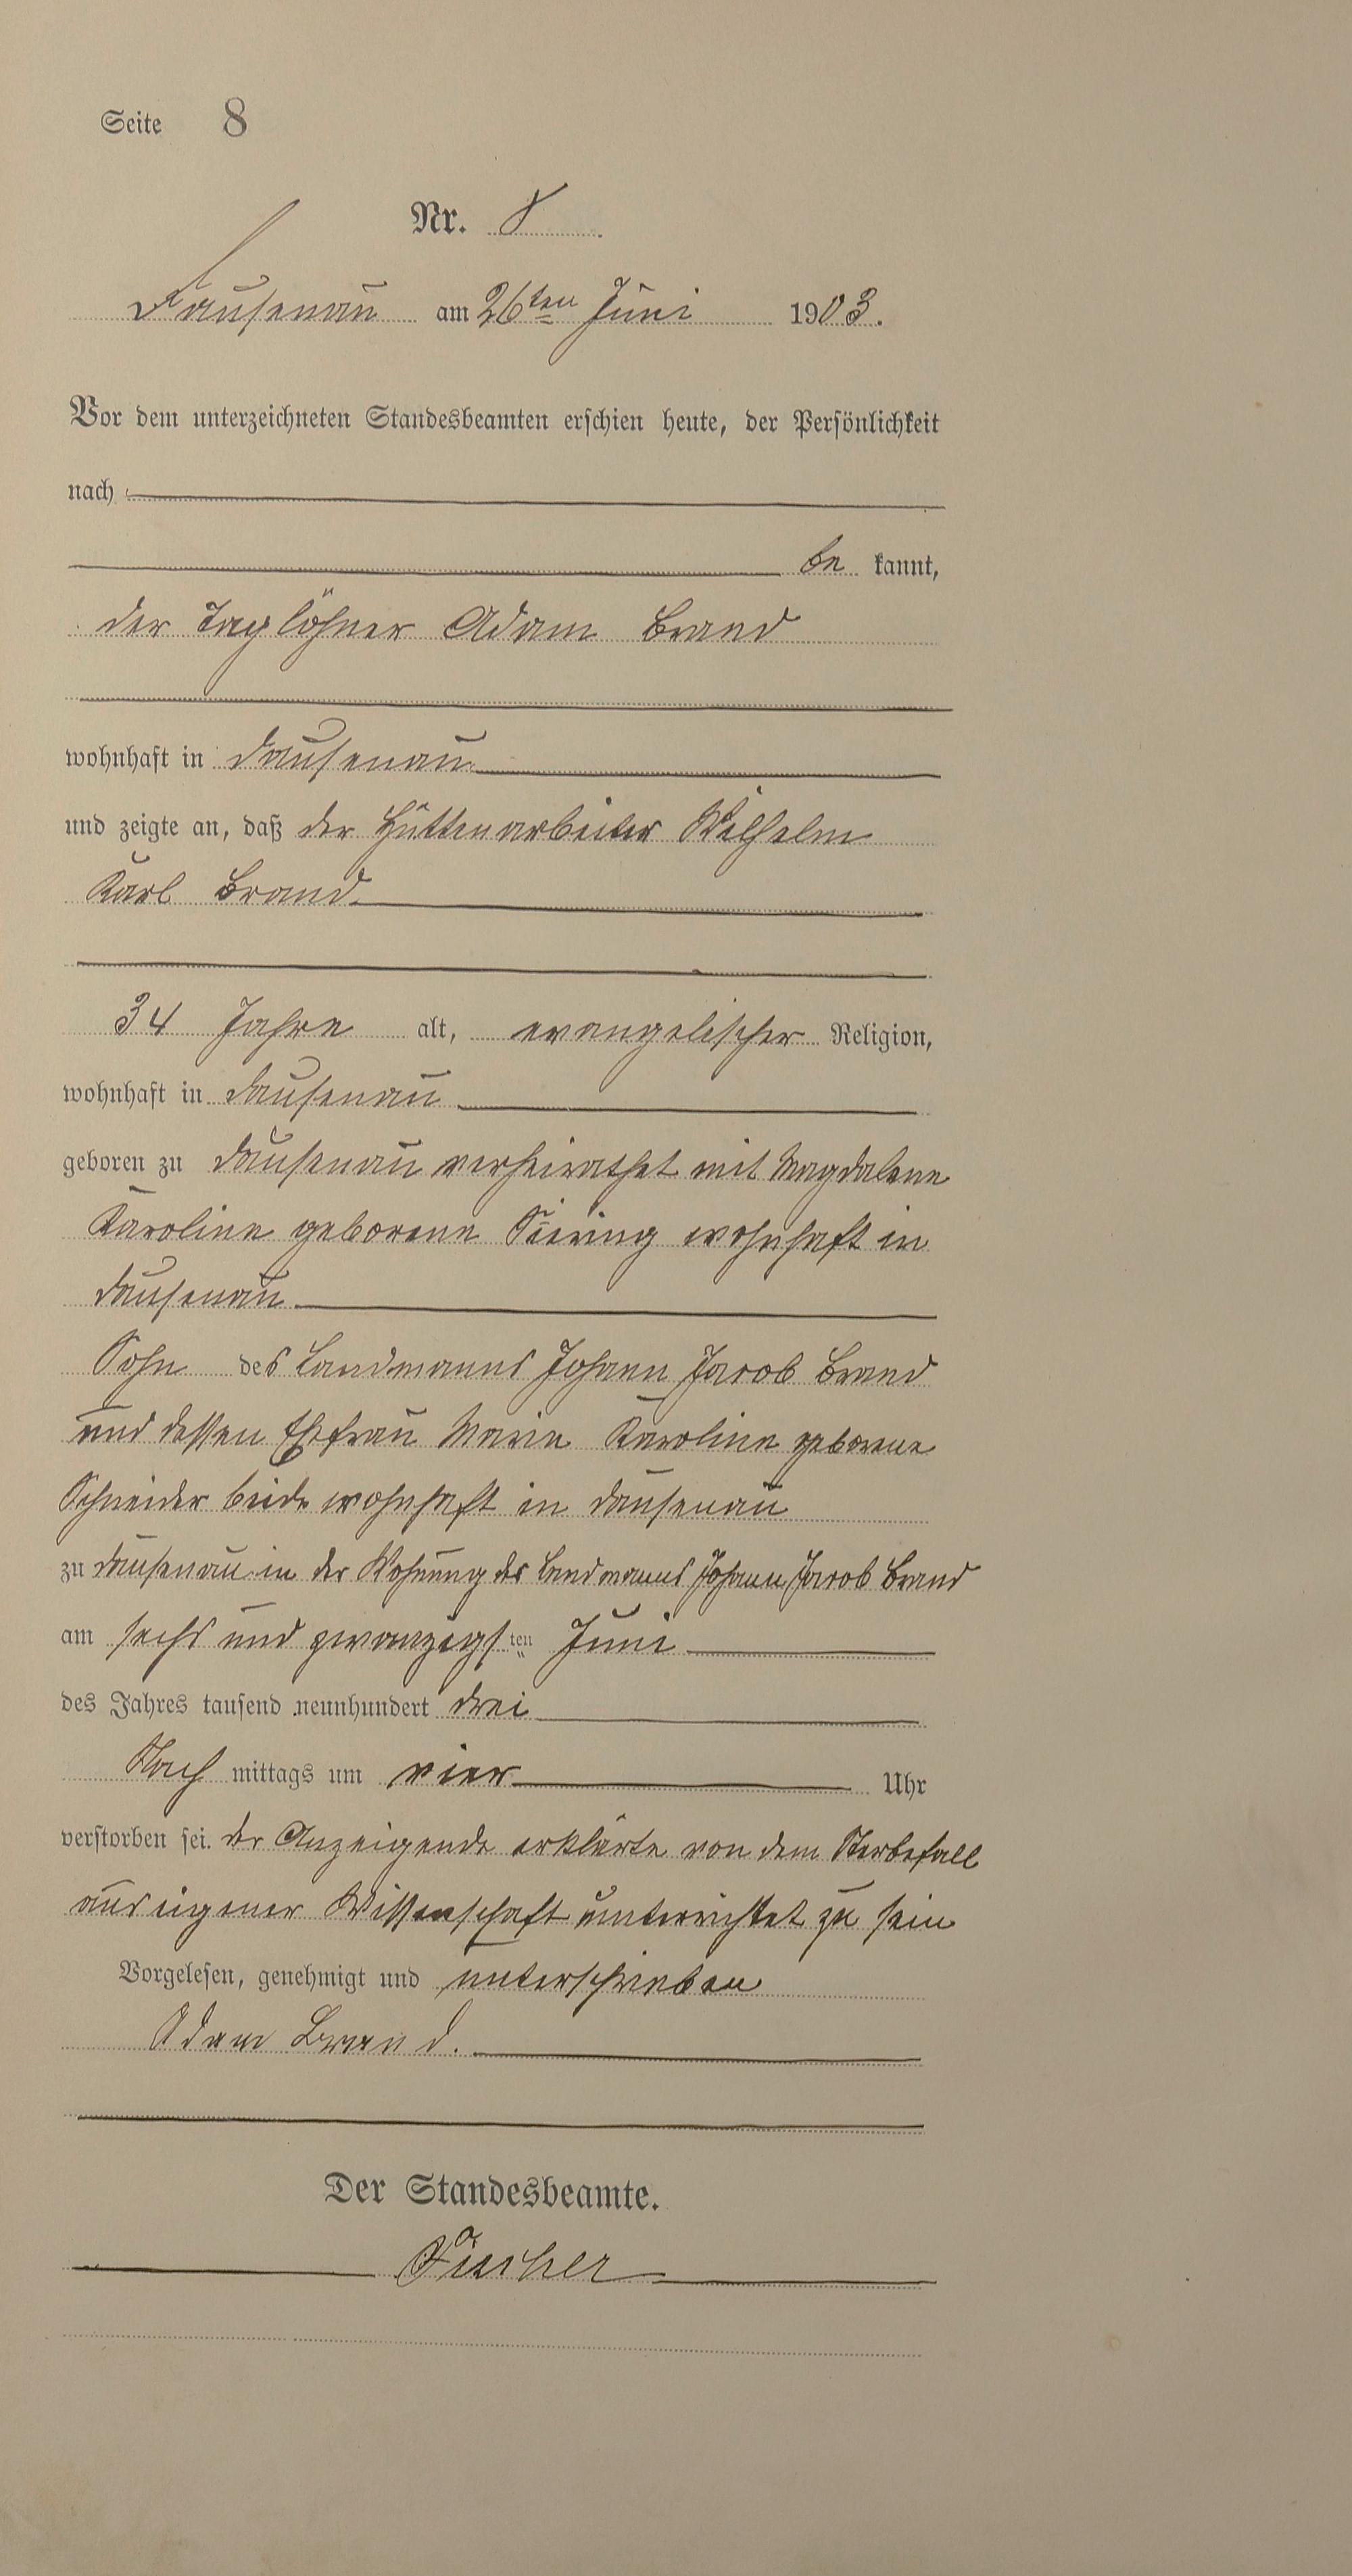 Seite 8
Nr. 8
Dausenau am 26ten Juni 1903.
Vor dem unterzeichneten Standesbeamten erschien heute, der Persönlichkeit
nach
be kannt,
der Taglöhner Adam Brand
wohnhaft in Dausenau
und zeigte an, daß der Hüttenarbeiter Wilhelm
Karl Brand
34 Jahre alt, evangelischer Religion,
wohnhaft in Dausenau
geboren zu Dausenau verheirathet mit Magdalene
Karoline geborene wohnhaft in
Dausenau
Sohn des Landmanns Johann Jacob Brand
und dessen Ehefrau Marie Karoline geborene
Schneider beide wohnhaft in Dausenau
zu Dausenau in der Wohnung des Landmanns Johann Jacob Brand
am sechs und zwanzigsten Juni
des Jahres tausend neunhundert drei
Nach mittags um vier Uhr
verstorben sei. der Anzeigende erklärte von dem Sterbefall
aus eigener Wissenschaft unterrichtet zu sein
Vorgelesen, genehmigt und unterschrieben
Adam Brand.
Der Standesbeamte.